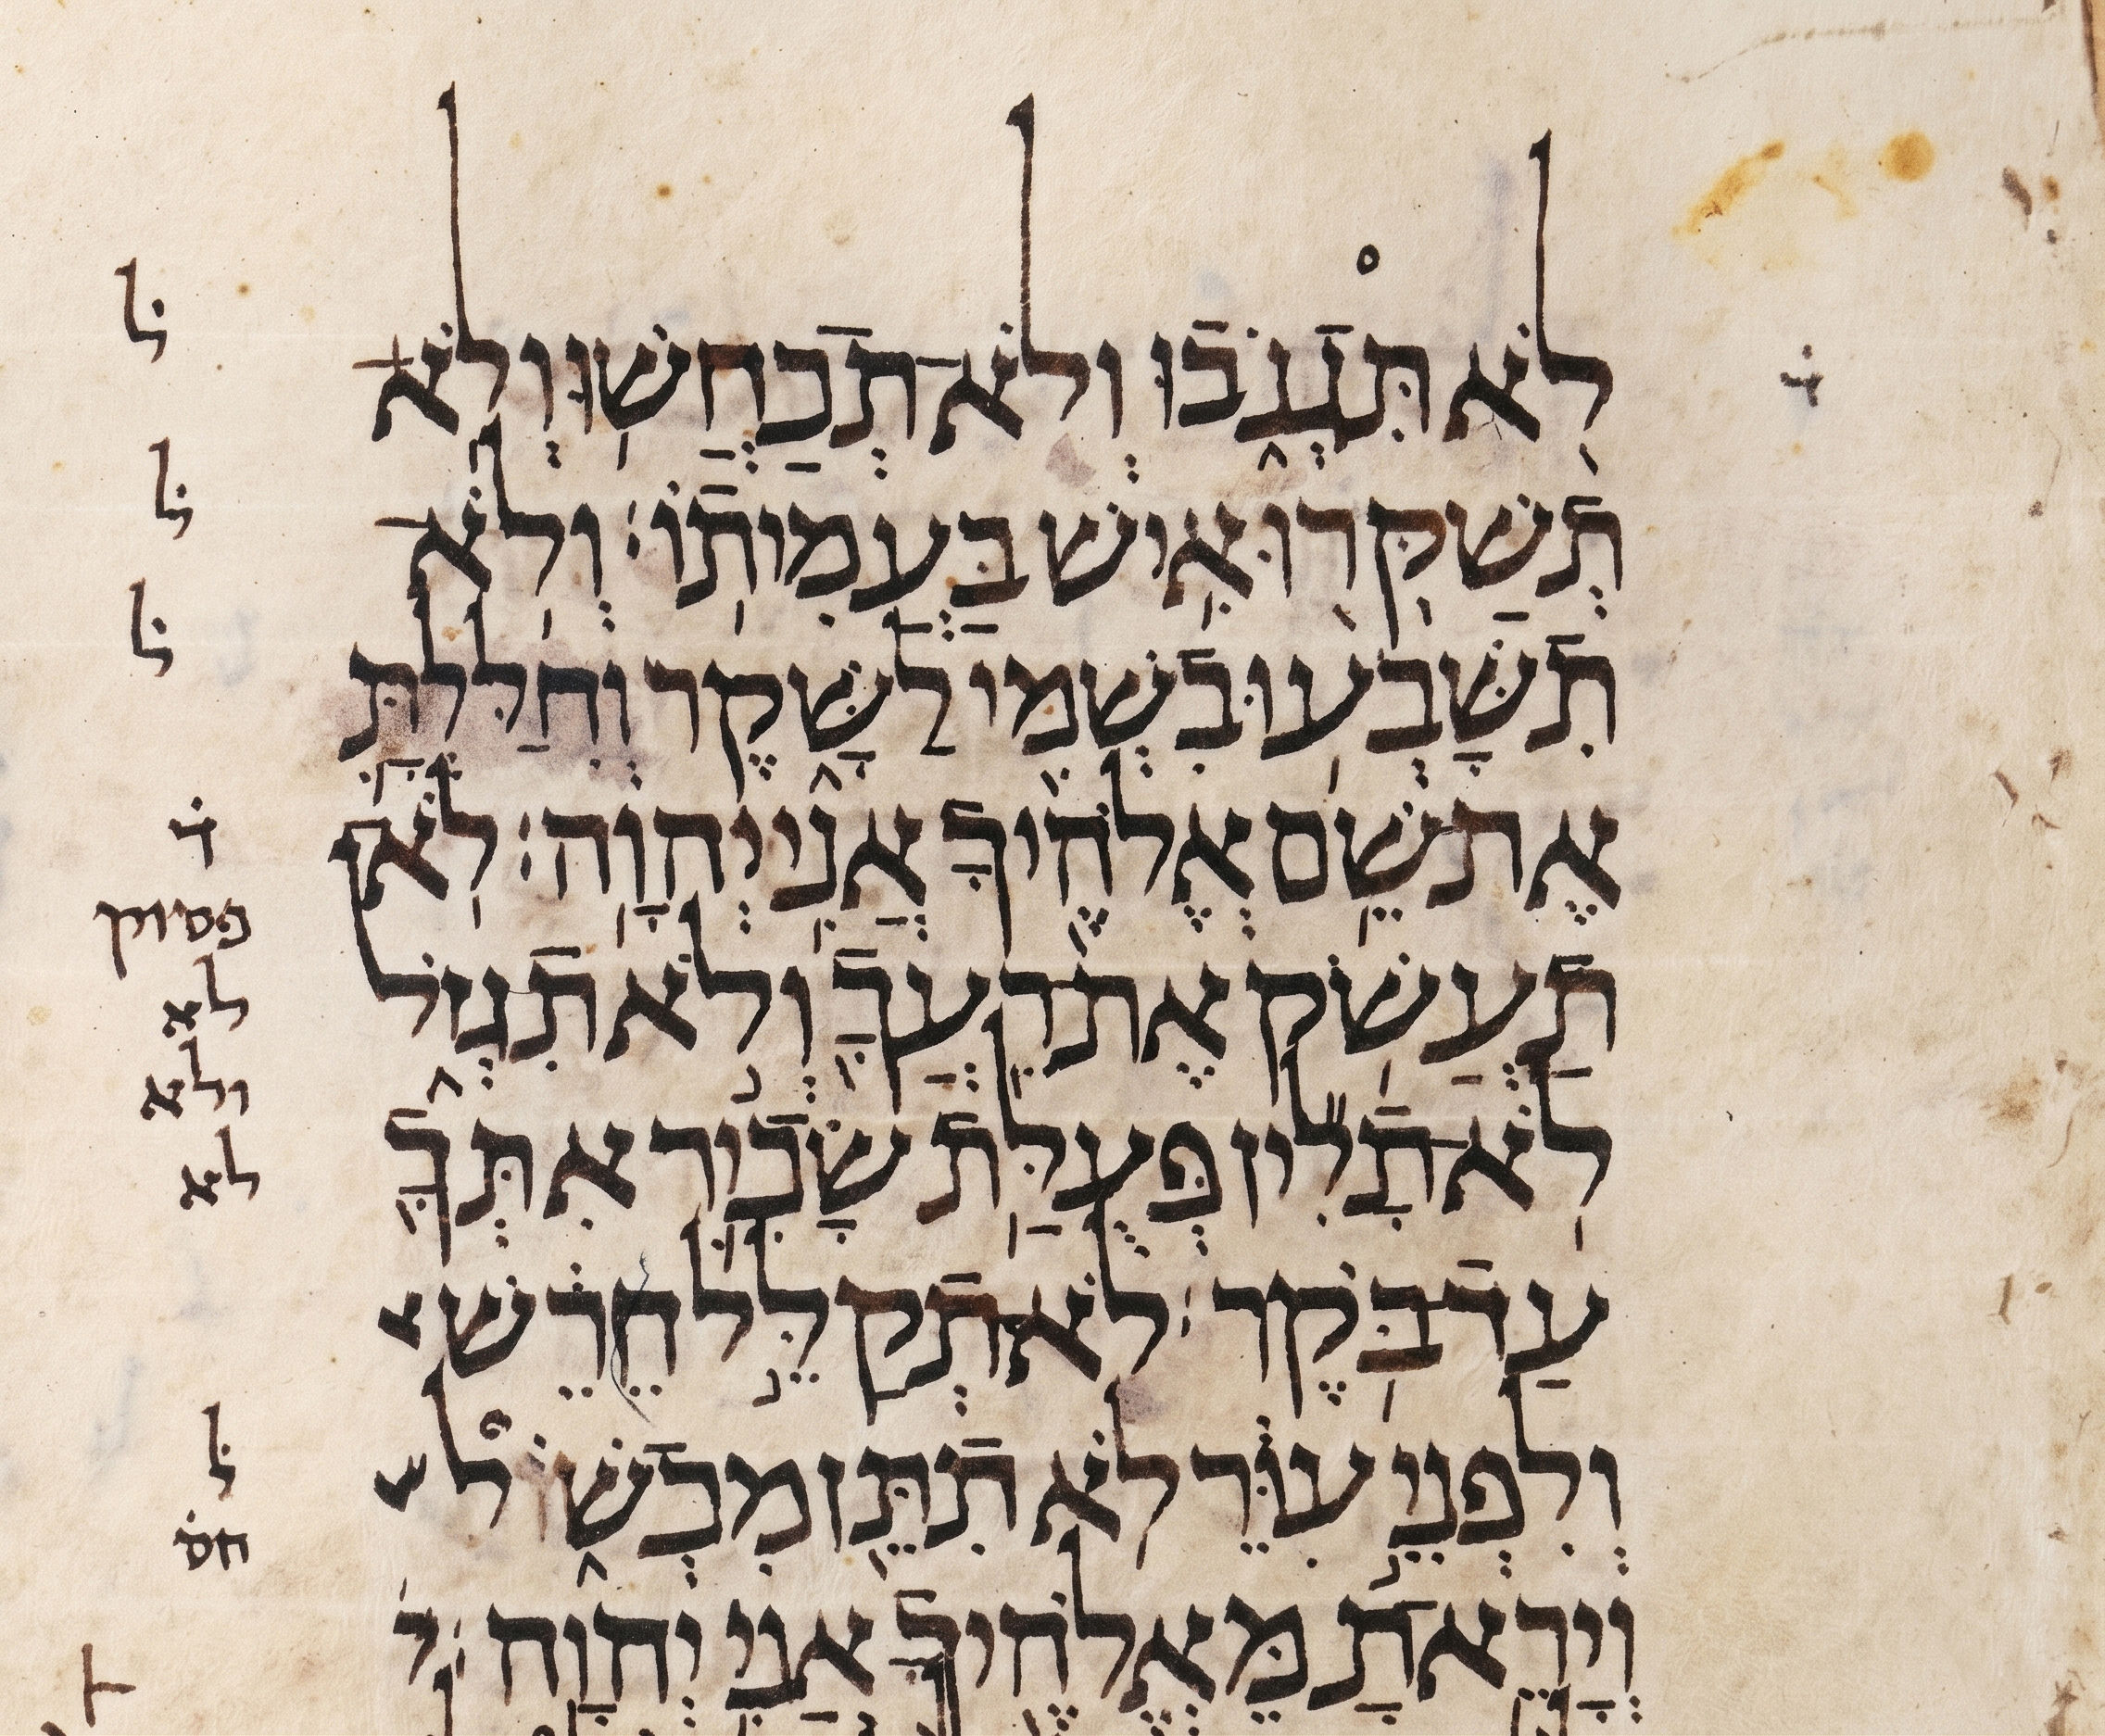 לֹא תִּגְנֹבוּ וְלֹא־תְכַחֲשׁוּ וְלֹא־
תְשַׁקְּרוּ אִישׁ בַּעֲמִיתוֹ׃ וְלֹא־
תִשָּׁבְעוּ בִשְׁמִי לַשָּׁקֶר וְחִלַּלְתָּ
אֶת־שֵׁם אֱלֹהֶיךָ אֲנִי יְהוָה׃ לֹא־
תַעֲשֹׁק אֶת־רֵעֲךָ וְלֹא תִגְזֹל
לֹא־תָלִין פְּעֻלַּת שָׂכִיר אִתְּךָ
עַד־בֹּקֶר׃ לֹא־תְקַלֵּל חֵרֵשׁ
וְלִפְנֵי עִוֵּר לֹא תִתֵּן מִכְשֹׁל
וְיָרֵאתָ מֵּאֱלֹהֶיךָ אֲנִי יְהוָה׃
ד̇
ל̇
ל̇
ל̇
ד̇
פסוק
לא
ולא
לא
ל̇
חס̇